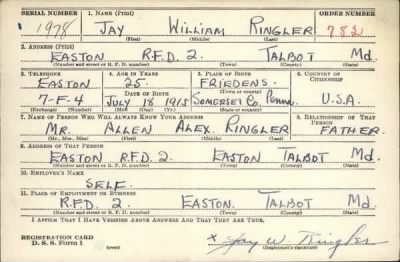 SERIAL NUMBER 1. NAME (Print) ORDER NUMBER
1978 JAY WILLIAM RINGLER 782
(First) (Middle) (Last)
2. ADDRESS (Print)
EASTON R.F.D. 2. TALBOT Md.
(Number and street or R. F. D. number) (Town) (County) (State)
3. TELEPHONE 4. AGE IN YEARS 5. PLACE OF BIRTH 6. COUNTRY OF CITIZENSHIP
EASTON 25 FRIEDENS
DATE OF BIRTH (Town or county)
7-F-4 JULY 18 1915 SOMERSET Co. Penna. U.S.A.
(Exchange) (Number) (Mo.) (Day) (Yr.) (State or country)
7. NAME OF PERSON WHO WILL ALWAYS KNOW YOUR ADDRESS 8. RELATIONSHIP OF THAT PERSON
MR. ALLEN ALEX RINGLER FATHER.
(Mr., Mrs., Miss) (First) (Middle) (Last)
9. ADDRESS OF THAT PERSON
EASTON R.F.D. 2 EASTON TALBOT Md.
(Number and street or R. F. D. number) (Town) (County) (State)
10. EMPLOYER'S NAME
SELF.
11. PLACE OF EMPLOYMENT OR BUSINESS
R.F.D. 2 EASTON. TALBOT Md.
(Number and street or R. F. D. number) (Town) (County) (State)
I AFFIRM THAT I HAVE VERIFIED ABOVE ANSWERS AND THAT THEY ARE TRUE.
REGISTRATION CARD
D. S. S. Form 1 (over) x Jay W. Ringler
(Registrant's signature)